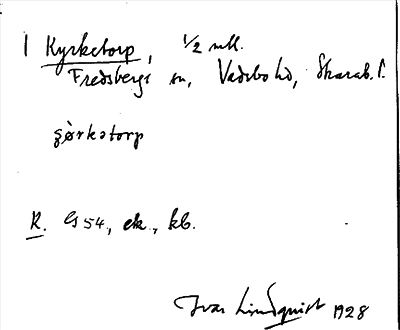 1 Kyrketorp, 1/2 mtl.
Fredsbergs sn, Vadsbo hd, Skarab. l.
çørkətorp
R. Gs 54, ek., kb.
Ivar Lindquist 1928